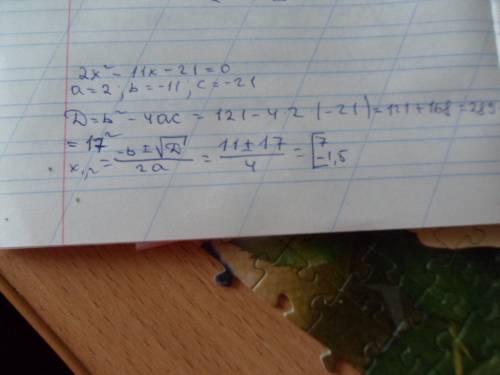 2x² - 11x - 21 = 0
a = 2; b = -11; c = -21
D = b² - 4ac = 121 - 4·2·(-21) = 121 + 168 = 289
= 17²
x₁,₂ = (-b ± √D)/(2a) = (11 ± 17)/4 = [7; -1,5